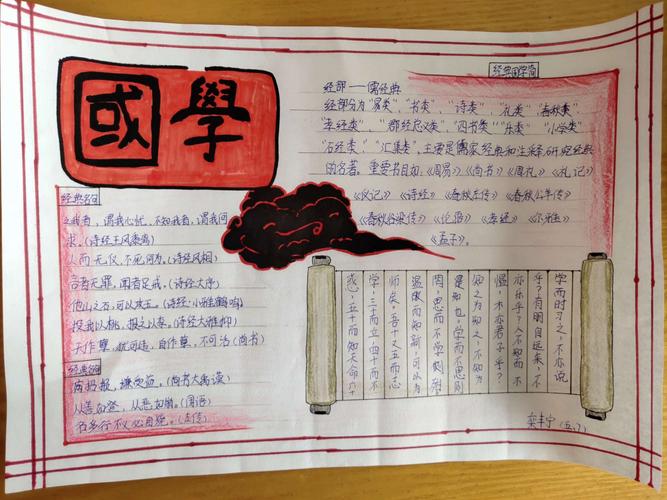 國學
经典国学
经部——儒经典
经部分为"易类""书类""诗类""礼类""春秋类"
"孝经类""群经总义类""四书类""乐类""小学类"
"石经类""汇集类",主要是儒家经典和注释研究经典
的名著。重要书目如:《周易》《尚书》《周礼》《礼记》
《仪记》《诗经》《春秋左传》《春秋公羊传》
《春秋谷梁传》《论语》《孝经》《尔雅》
《孟子》。
经典名句
我者,谓我心忧,不知我者,谓我何
求。(诗经王风黍离)
人而无仪,不死何为。(诗经风相)
言者无罪,闻者足戒。(诗经大序)
他山之石,可以攻玉。(诗经·小雅鹤鸣)
投我以桃,报之以李。(诗经大雅抑)
天作孽,犹可违,自作孽,不可活(尚书)
经典名句
满招损,谦受益。(尚书大禹谟)
从善如登,从恶如崩。(国语)
多行不义必自毙。(左传)
学而时习之,不亦说
乎?有朋自远来,不
亦乐乎?人不知而不
愠,不亦君子乎?
知之为知之,不知为
是知也。学而不思则
罔,思而不学则殆
温故而知新,可以为
师矣。吾十又五而志
学,三十而立,四十而不
惑,五十而知天命,六十